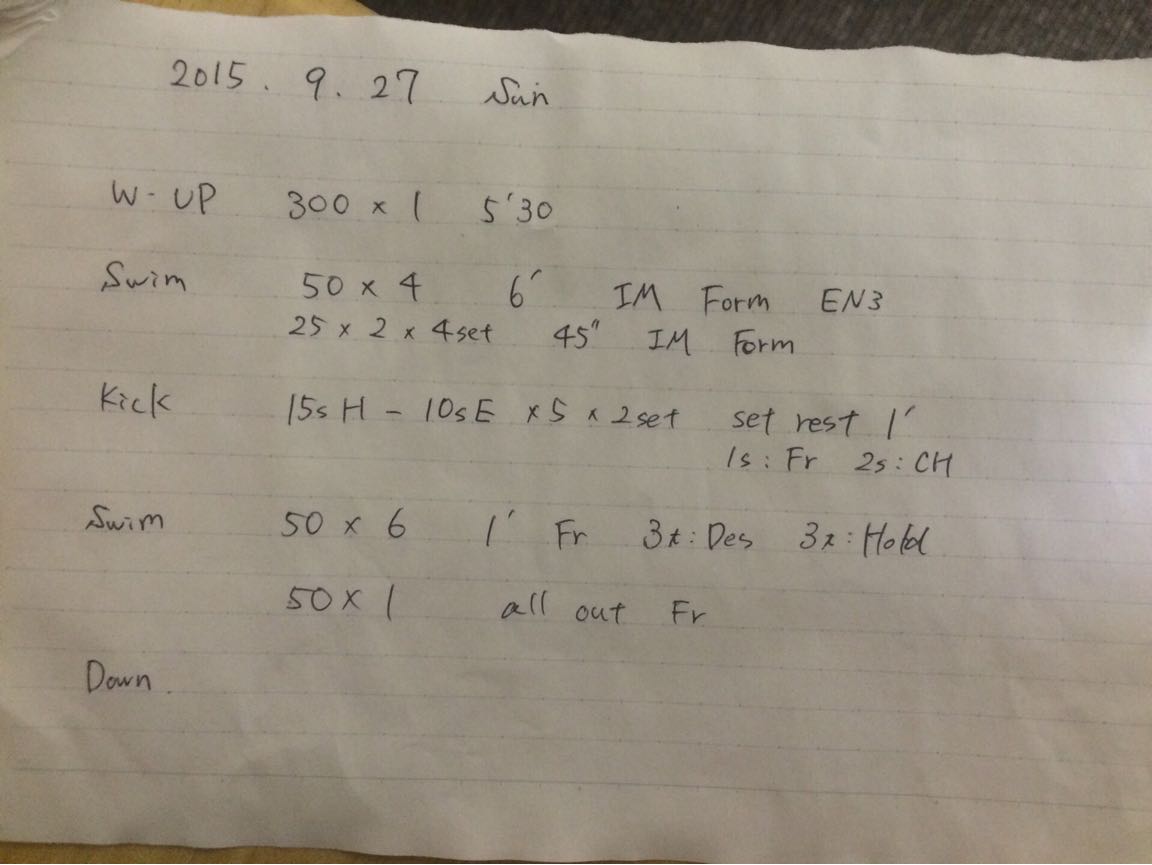 2015. 9. 27 Sun
W-UP 300 × 1 5'30
Swim 50 × 4 6' IM Form EN3
25 × 2 × 4set 45" IM Form
Kick 15s H - 10s E × 5 × 2set set rest 1'
1s: Fr 2s: CH
Swim 50 × 6 1' Fr 3t: Des 3t: Hold
50 × 1 all out Fr
Down.